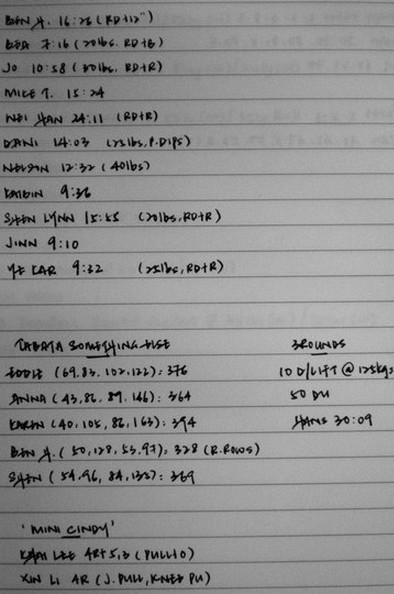 BEN H. 16:23 (RD+12")
BEA 7:16 (20lbs. RD+B)
JO 10:58 (30lbs. RD+R)
MIKE T. 15:24
WEI HAN 24:11 (RD+R)
DANI 14:03 (25lbs, P.DIPS)
NELSON 12:32 (40lbs)
9:36
SHEN LYNN 15:55 (20lbs, RD+R)
JINN 9:10
YE KAR 9:32 (25lbs, RD+R)
TABATA SOMETHING ELSE
EDDIE (69,83,102,122): 376
ANNA (43,86,89,146): 364
KAREN (40,105,86,163): 394
BEN H. (50,128,53,97): 328 (R.ROWS)
SHEN (54,96,84,135): 369
3 ROUNDS
10 D/LIFT @ 125kgs
50 DU
HANS 30:09
'MINI CINDY'
KHAI LEE 4R+5,3 (PULL10)
XIN LI 4R (J.PULL, KNEE PU)